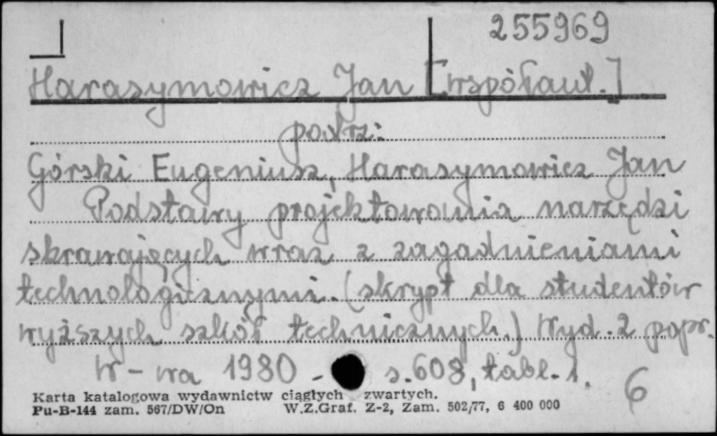 255969
Harasymowicz Jan [współaut.]
patrz:
Górski Eugeniusz, Harasymowicz Jan
Podstawy projektowania narzędzi
skrawających wraz z zagadnieniami
technologicznymi. (skrypt dla studentów
wyższych szkół technicznych.) Wyd. 2 popr.
W-wa 1980 - s. 608, tabl. 1.
6
Karta katalogowa wydawnictw ciągłych zwartych.
Pu-B-144 zam. 567/DW/On W.Z.Graf. Z-2, Zam. 502/77, 6 400 000